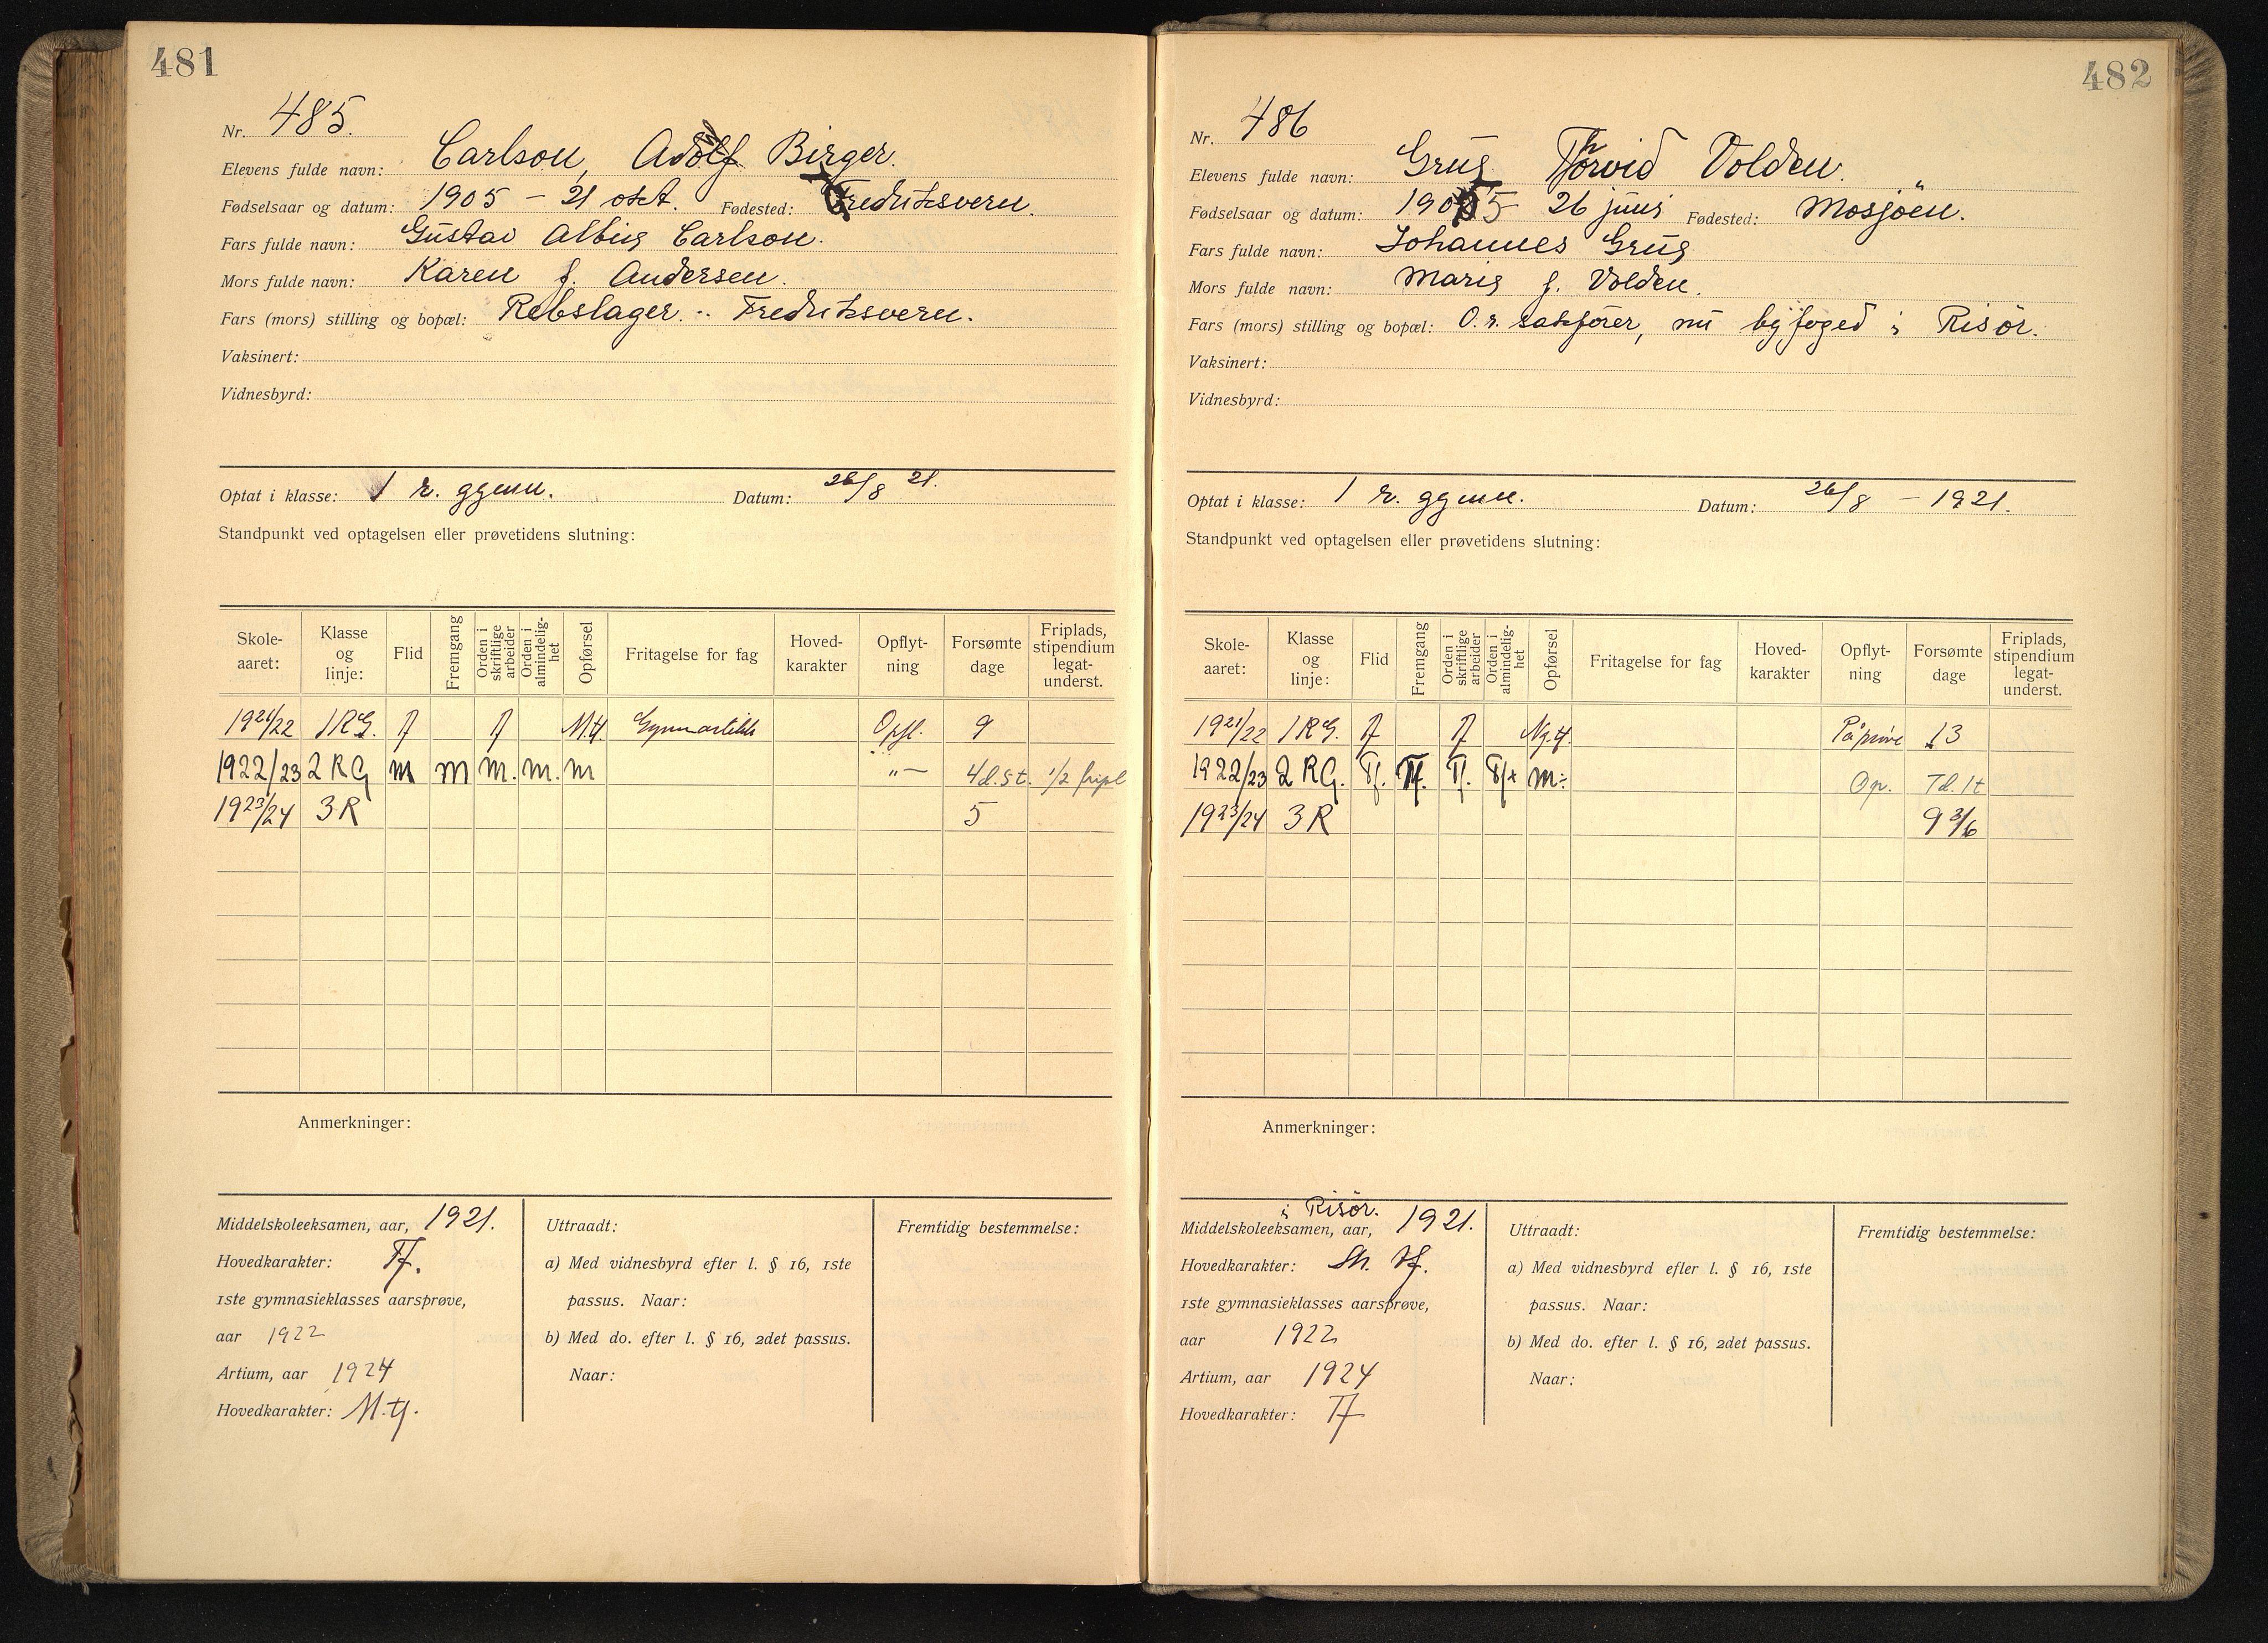 481
Nr. 485.
Elevens fulde navn: Carlson, Adolf Birger.
Fødselsaar og datum: 1905 - 21 okt. Fødested: Fredriksvern.
Fars fulde navn: Gustav Albin Carlson.
Mors fulde navn: Karen f. Andersen.
Fars (mors) stilling og bopæl: Rebslager. - Fredriksvern.
Vaksinert:
Vidnesbyrd:
Optat i klasse: 1 r. ggmn. Datum: 26/8 21.
Standpunkt ved optagelsen eller prøvetidens slutning:
Skole-aaret: Klasse og linje: Flid Fremgang Orden i skriftlige arbeider Orden i almindelig-het Opførsel Fritagelse for fag Hoved-karakter Opflyt-ning Forsømte dage Friplads, stipendium legat-underst.
1921/22 1RG. Tf Tf M.tf. Gymnastikk Opfl. 9
1922/23 2 RG m m m. m. m "— 4d.5t. 1/2 fripl
1923/24 3R 5
Anmerkninger:
Middelskoleeksamen, aar, 1921.
Hovedkarakter: Tf.
1ste gymnasieklasses aarsprøve,
aar 1922
Artium, aar 1924
Hovedkarakter: M.tf.
Uttraadt:
a) Med vidnesbyrd efter l. § 16, 1ste
passus. Naar:
b) Med do. efter l. § 16, 2det passus.
Naar:
Fremtidig bestemmelse:
482
Nr. 486
Elevens fulde navn: Grug Thorvid Volden.
Fødselsaar og datum: 1905 26 juni Fødested: Mosjöen.
Fars fulde navn: Johannes Grug
Mors fulde navn: Marie f. Volden.
Fars (mors) stilling og bopæl: O.r. sakfører, nu byfoged i Risör.
Vaksinert:
Vidnesbyrd:
Optat i klasse: 1 r. ggmn. Datum: 26/8 - 1921.
Standpunkt ved optagelsen eller prøvetidens slutning:
Skole-aaret: Klasse og linje: Flid Fremgang Orden i skriftlige arbeider Orden i almindelig-het Opførsel Fritagelse for fag Hoved-karakter Opflyt-ning Forsømte dage Friplads, stipendium legat-underst.
1921/22 1RG. Tf Tf Ng.tf. På prøve 13
1922/23 2 RG. Tf. Tf. Tf. Tf+ m÷ Op. 7d.1t
1923/24 3R 9 3/6
Anmerkninger:
i Risör.
Middelskoleeksamen, aar, 1921.
Hovedkarakter: tf.
1ste gymnasieklasses aarsprøve,
aar 1922
Artium, aar 1924
Hovedkarakter: Tf
Uttraadt:
a) Med vidnesbyrd efter l. § 16, 1ste
passus. Naar:
b) Med do. efter l. § 16, 2det passus.
Naar:
Fremtidig bestemmelse: